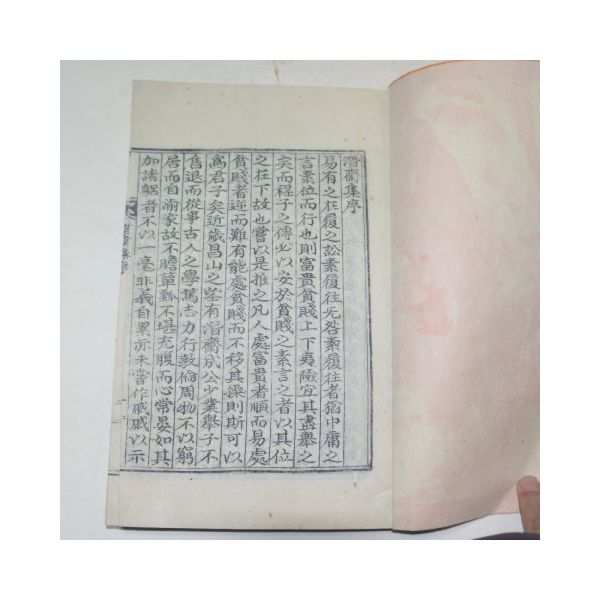 潛齋集序
易有之在履之訟素履往无咎素履往者猶中庸之
言素位而行也則富貴貧賤上下夷險宜其盡擧之
矣而程子之傳必以安於貧賤之素言之者以其位
之在下故也嘗以是推之凡人處富貴者順而易處
貧賤者逆而難有能處貧賤而不移其操則斯可以
爲君子矣近歲昌山之堂有潛齋成公少業擧子不
售退而從事古人之學篤志力行敦倫周物不以窮
居而自渝家故不贍簞瓢不堪充腹而心常晏如其
加諸躬者不以一毫非義自累亦未嘗作戚戚以示